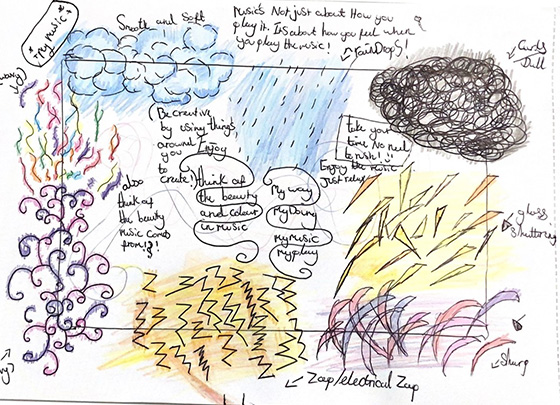 *my music*
Smooth and Soft
Music's Not just about How you
play it. It's about how you feel when
you play the music!
RainDrops!
Dull
Be creative
by using things
around
you
to
create!
Enjoy
think of
the beauty
and colour
in music
My way
My Doing
my Music
my play
take your
time No need
to rush!
Enjoy the music
Just relax
also
think of
the beauty
music comes
from!?!
glass
Shattering
Sharp
Zap/electrical Zap